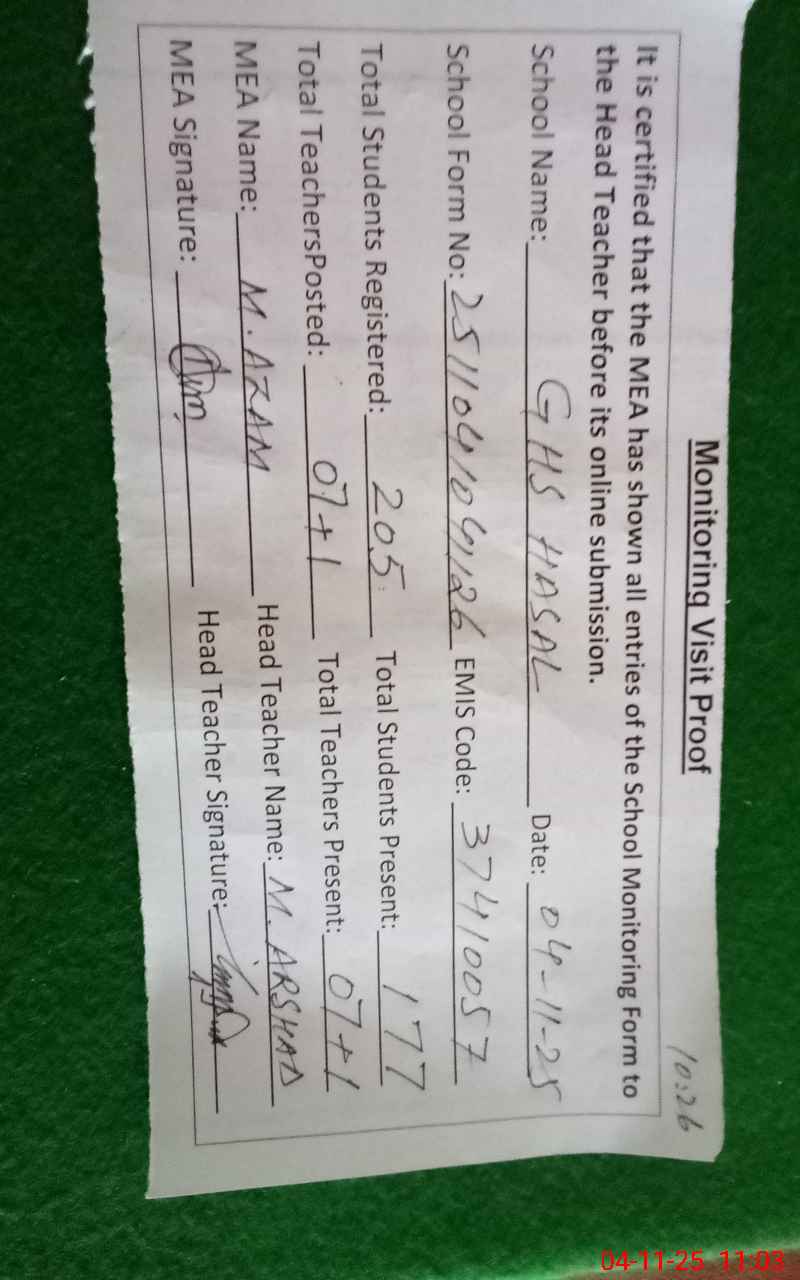 10:26
Monitoring Visit Proof
It is certified that the MEA has shown all entries of the School Monitoring Form to
the Head Teacher before its online submission.
School Name: GHS HASAL Date: 04-11-25
School Form No: 2511041041126 EMIS Code: 37410057
Total Students Registered: 205 Total Students Present: 177
Total TeachersPosted: 07+1 Total Teachers Present: 07+1
MEA Name: M. AZAM Head Teacher Name: M. ARSHAD
MEA Signature: Head Teacher Signature:
04-11-25 11:03